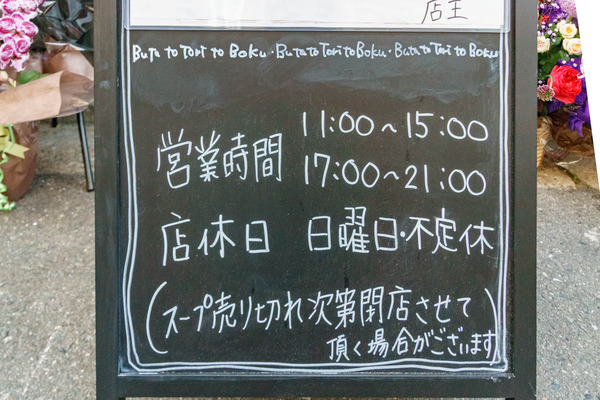 店主
Buta to Tori to Boku・Buta to Tori to Boku・Buta to Tori to Boku
営業時間 11:00～15:00
17:00～21:00
店休日 日曜日・不定休
(スープ売り切れ次第閉店させて
頂く場合がございます)